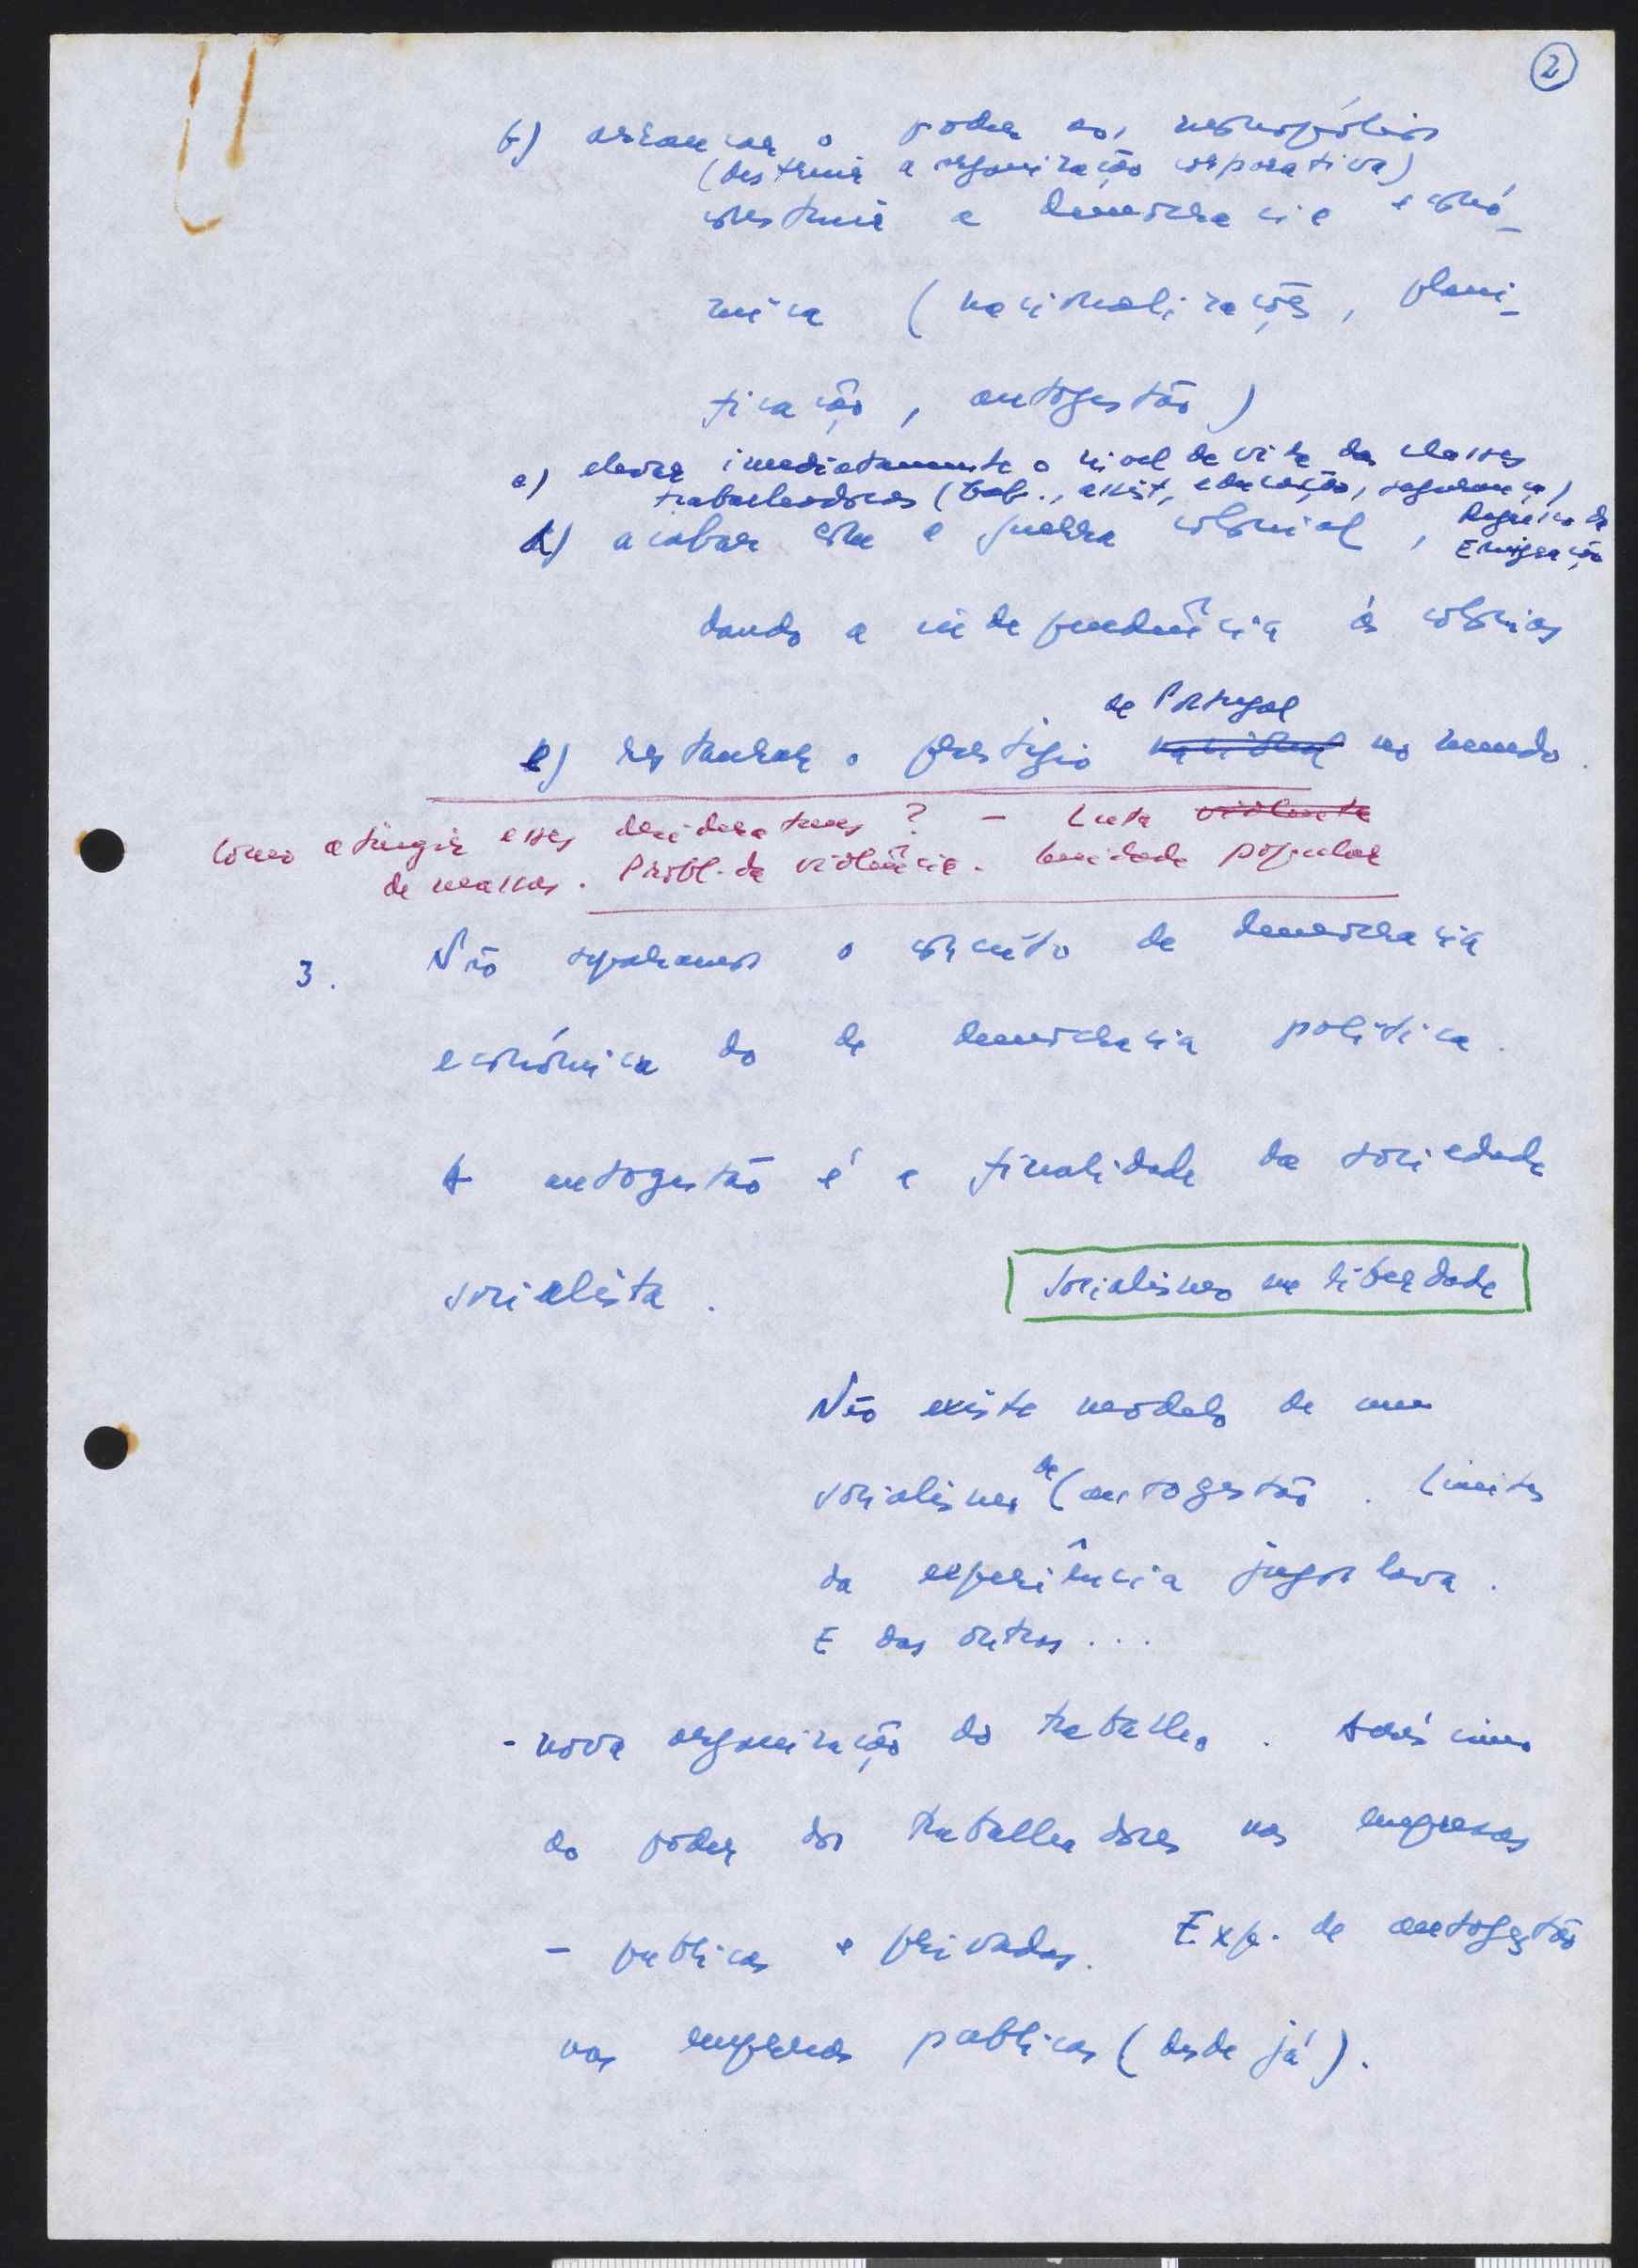 2
b) arrancar o poder aos monopólios
(destruir a organização corporativa)
construir a democracia econó-
mica (nacionalizações, plani-
ficação, autogestão)
c) elevar imediatamente o nível de vida das classes
trabalhadoras (hab., assist, educação, segurança)
d) acabar com a guerra colonial,
Regresso da
Emigração
dando a independência às colónias
de Portugal
e) restaurar o prestígio nacional no mundo.
Como atingir esses desideratums? - Luta violenta
de massas. Probl. da violência. Unidade popular
3. Não separamos o conceito de democracia
económica do de democracia política.
A autogestão é a finalidade da sociedade
socialista.
Socialismo na liberdade
Não existe modelo de um
socialismo de (autogestão. Limites
da experiência jugoslava.
E das outras...
- nova organização do trabalho. Acréscimo
do poder dos trabalhadores nas empresas
- publicas e privadas. Exp. de autogestão
nas empresas publicas (desde já).